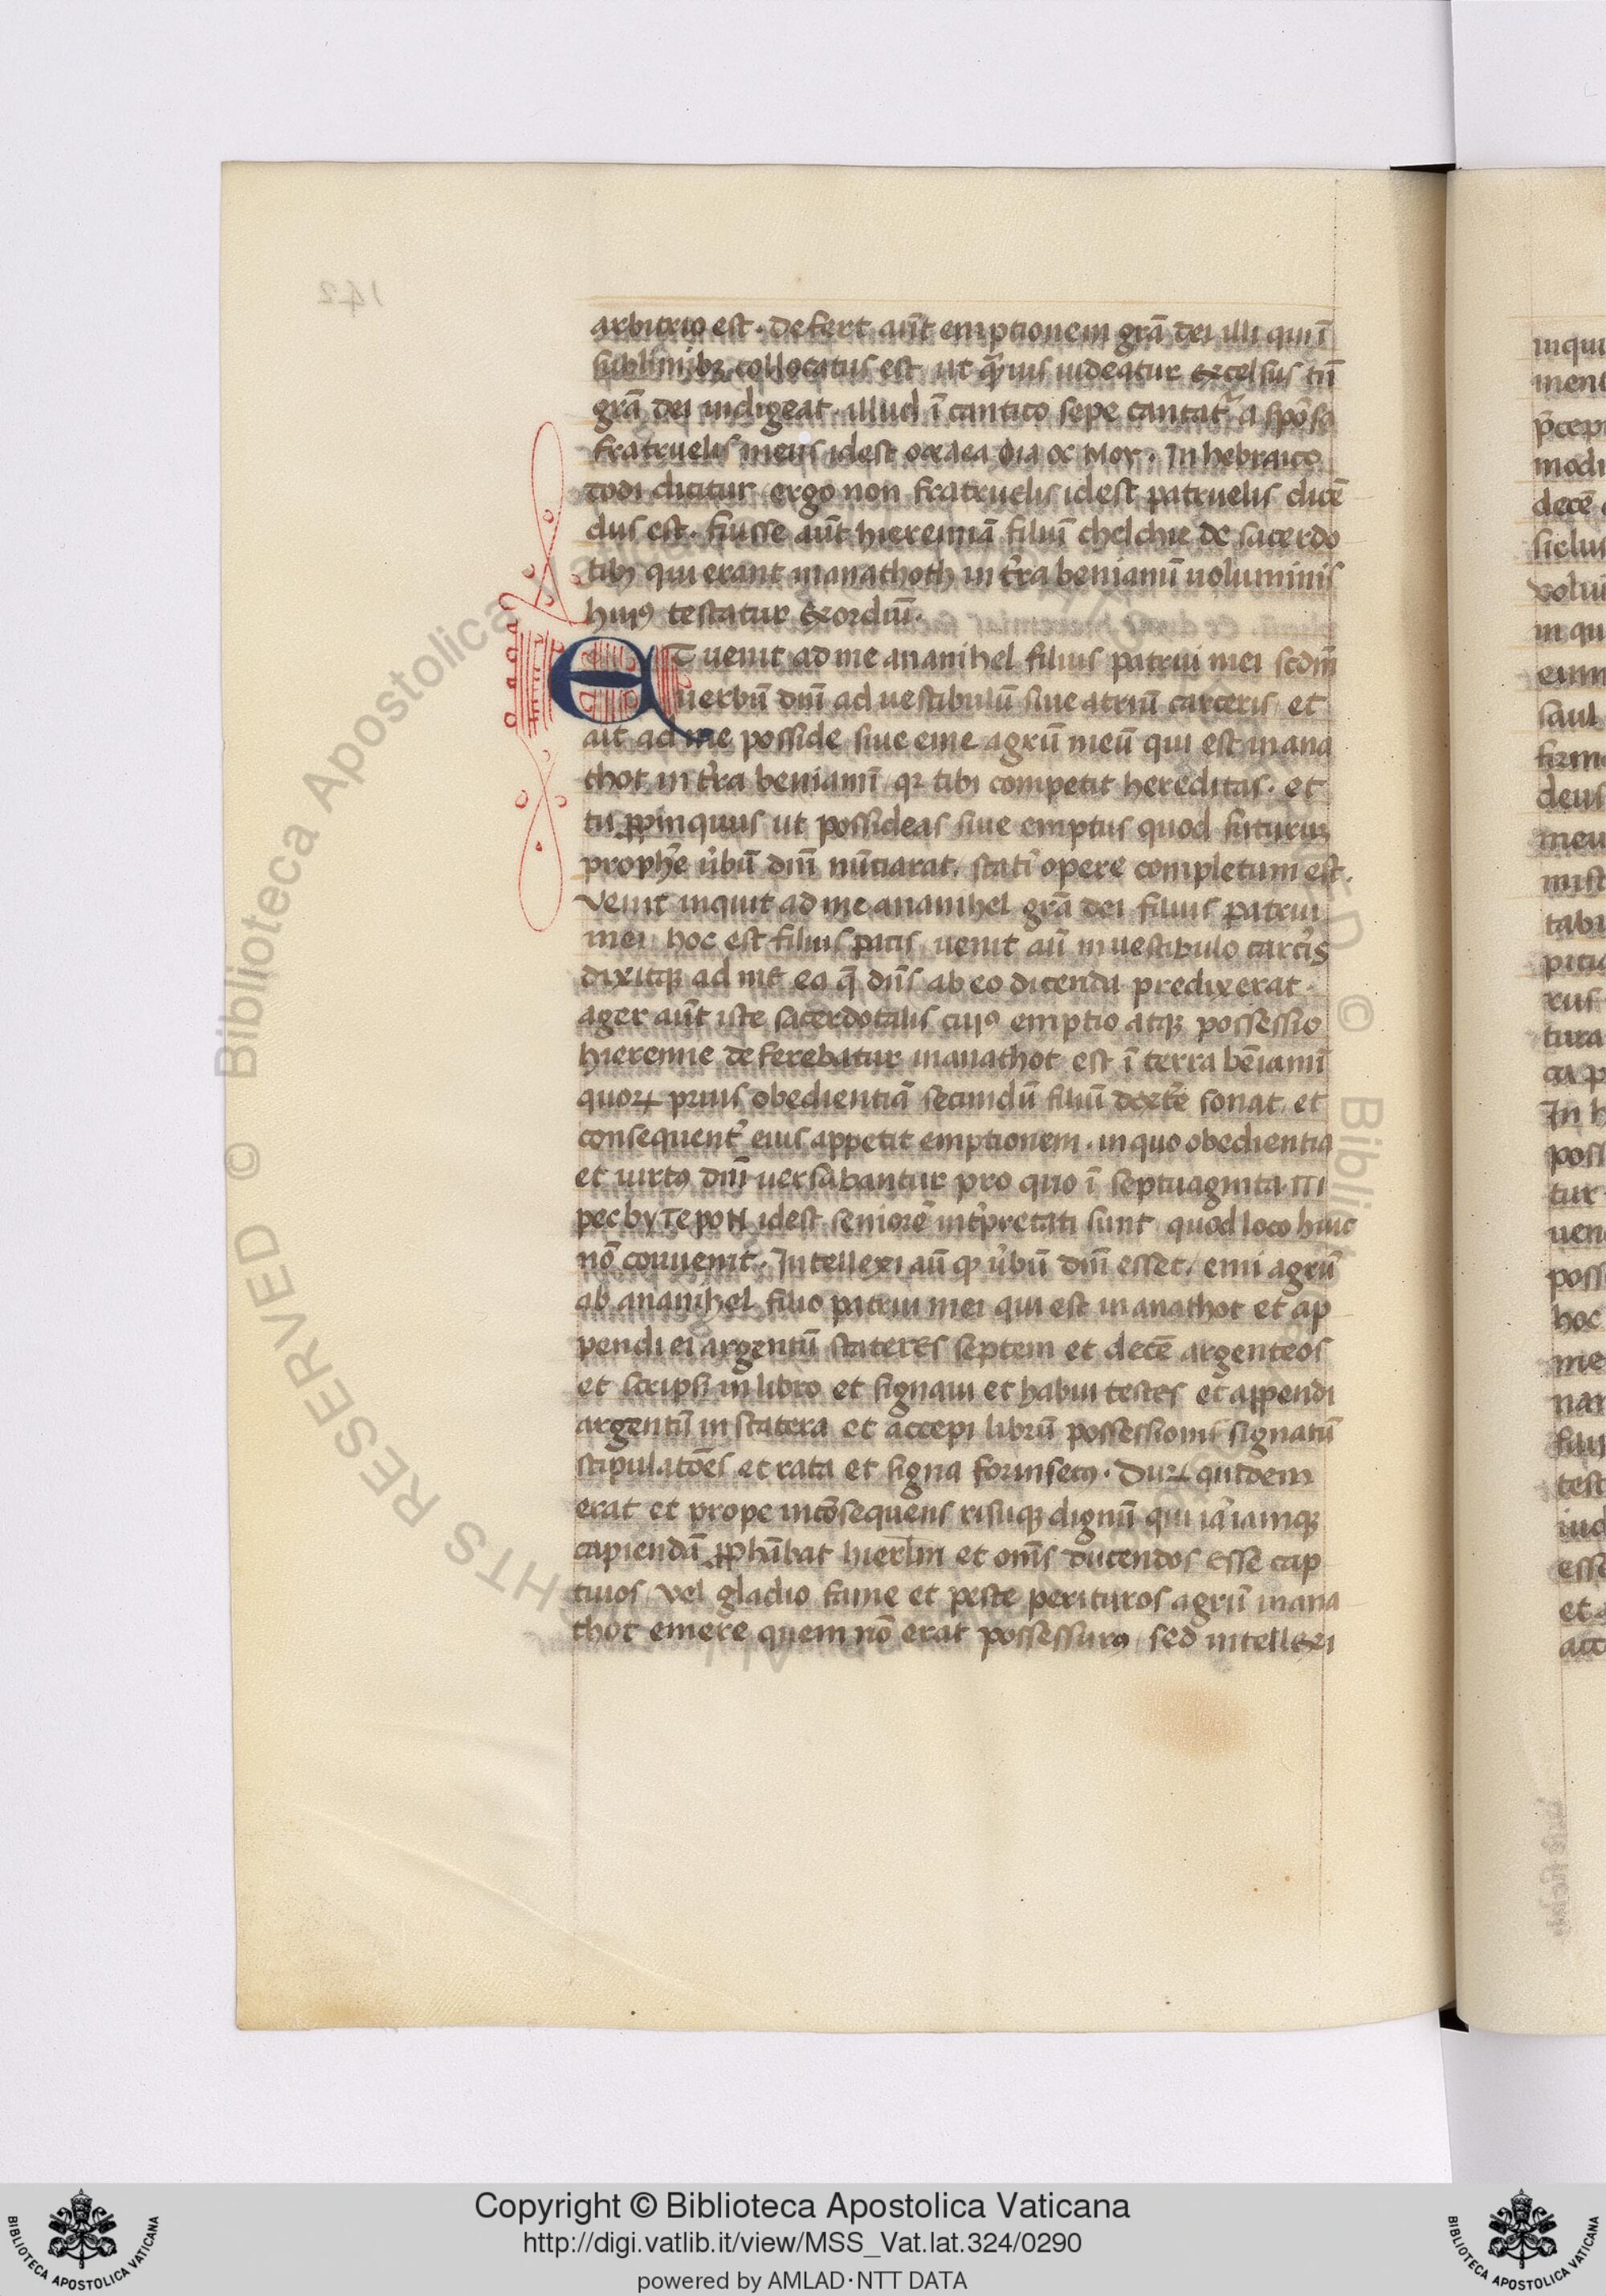 arbitrio est. defert aūt emptionem grā dei illi qui ī
sublimibꝫ collocatus est ut quāuis uideatur excelsus tn̄
grā dei indigeat. illud ī cantico sepe cantatr̉ a spōsa
fratruelis meus idest Mox. In hebraico
dodi dicitur ergo non fratruelis idest patruelis dicē
dus est. fuisse aūt hieremiā filiū chelchie de sacerdo
tibꝫ qui erant inanathoth in tr̉ra beniamī uoluminis
huiꝰ testatur exordiū.
ET uenit ad me ananihel filius patrui mei scdm̄
uerbū dn̄i ad uestibulū siue atriū carceris et
ait ad me posside siue eme agrū meū qui est in ana
thot in tr̉ra beniamī qꝛ tibi competit hereditas. et
tu ꝓpinquus ut possideas siue emptus quod futurus
prophe ủbū dn̄i nūtiarat. stati opere completum est.
Venit inquit ad me ananihel grā dei filius patrui
mei hoc est filius patis uenit aū in uestibulo carcis
dixitqꝫ ad me ea q̄ dn̄s ab eo dicenda predixerat.
ager aūt iste sacerdotalis cuiꝰ emptio atqꝫ possessio
hieremie deferebatur inanathot est ī terra bēiamī
quoꝝ prius obedientiā secundū filiū dextē sonat et
consequentr̉ eius appetit emptionem. in quo obedientia
et uirtꝰ dn̄i uersabantur pro quo ī septuaginta
idest seniorē intp̉retati sunt quod loco huic
nō conuenit. Intellexi aū qꝫ ủbū dn̄i esset. emi agrū
ab ananihel filio patrui mei qui est in anathot et ap
pendi ei argentū stateres septem et decē argenteos
et scripsi in libro et signaui et habui testes et appendi
argentū in statera et accepi librū possessionis signatū
stipulatōes et rata et signa forinsecꝰ. Duꝝ quidem
erat et prope incōsequens risuqꝫ dignū qui ia iamqꝫ
capiendā ꝓphābat hierlm̄ et omīs ducendos esse cap
tiuos vel gladio fame et peste perituros agrū inana
thot emere quem nō erat possessurꝰ sed intellexi
Copyright © Biblioteca Apostolica Vaticana
http://digi.vatlib.it/view/MSS_Vat.lat.324/0290
powered by AMLAD·NTT DATA